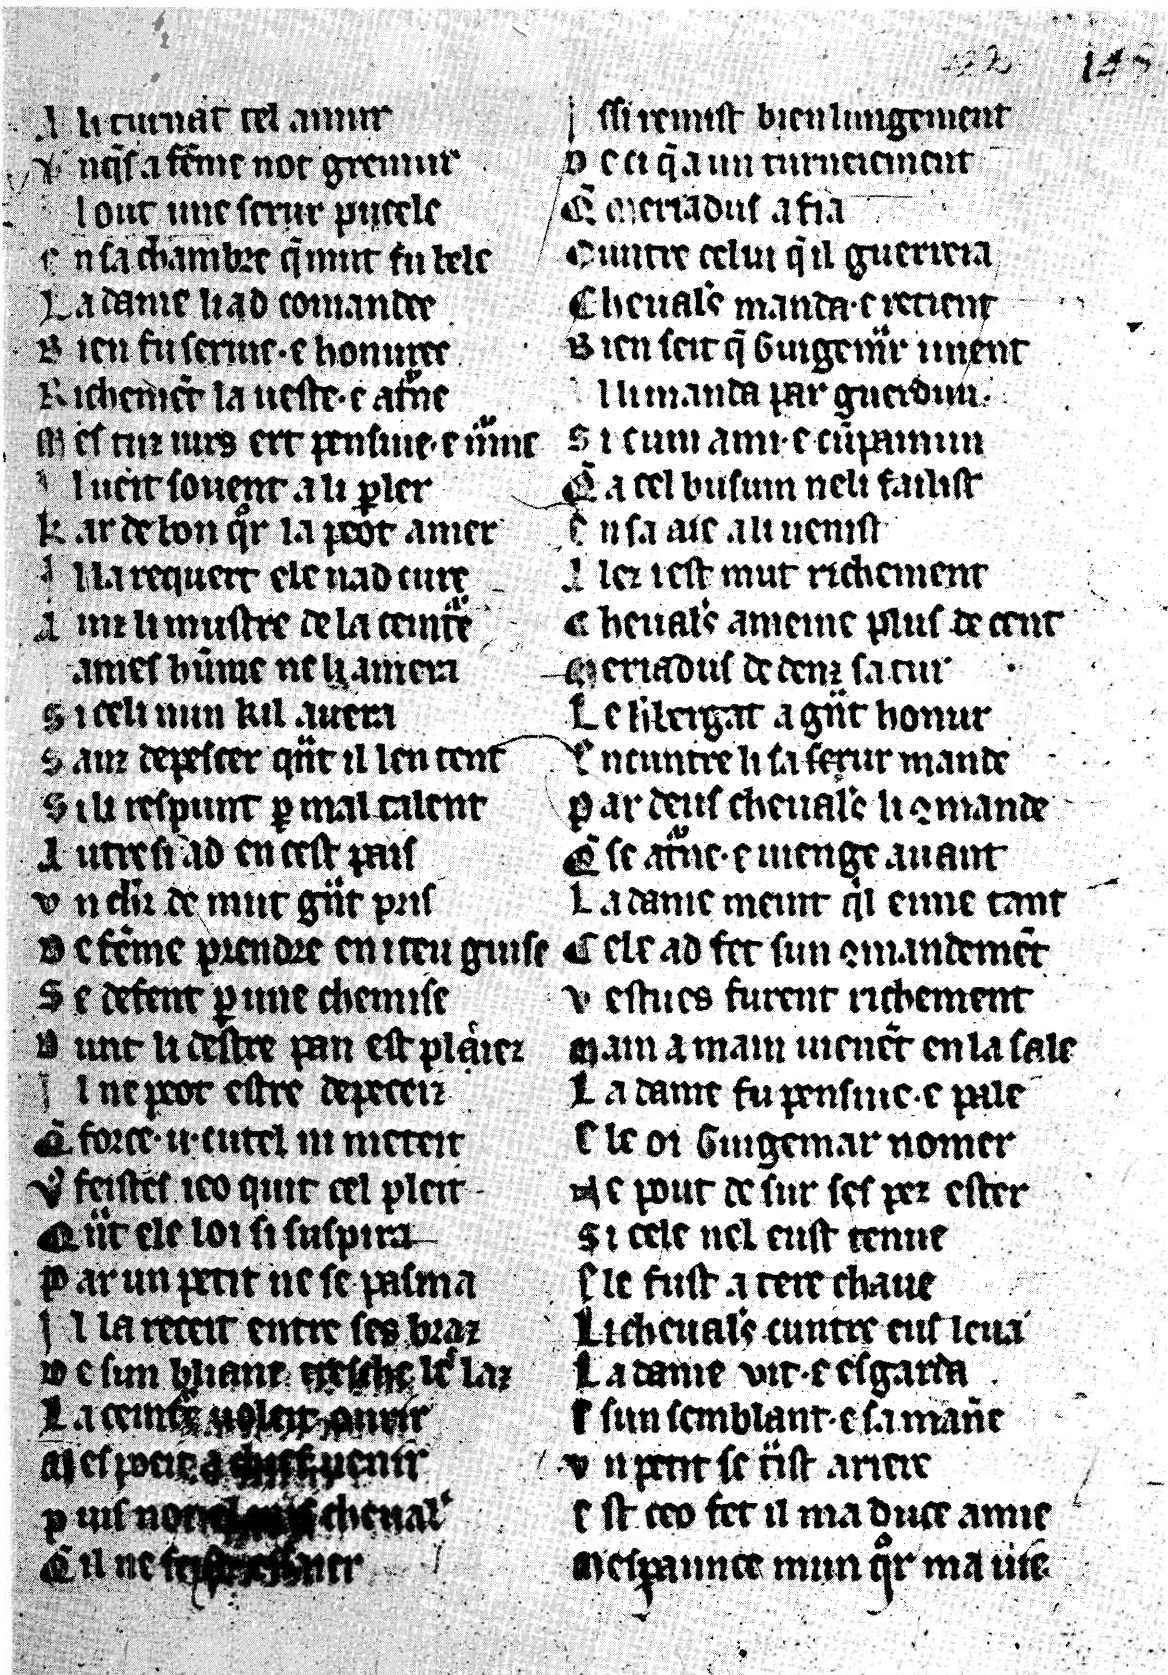 148
A li turnat cel amur
V nq̃s a fẽme not greinur
I l out une serur pucele
E n sa chambre q̃ mut fu bele
L a dame li ad comandee
B ien fu seruie · e honuree
R ichemẽt la ueste · e aturne
M es tuz iurs ert pensiue · e murne
I l ueit souent a li ꝑler
K ar de bon qor la peot amer
I l la requert ele nad cure
A inz li mustre de la ceinture
I ames hũme ne li amera
S i celi nun kil auera
S anz depescer quant il lentent
S i li respunt ꝑ mal talent
A utresi ad en cest pais
V n chr̃ de mut grant pris
D e fẽme prendre en iteu guise
S e defent ꝑ une chemise
D unt li destre pan est plaiez
I l ne peot estre depeceiz
Q̃ force · u · cutel ni meteit
V feistes ieo quit cel pleit
Q uant ele loi si suspira
P ar un petit ne se pasma
I l la receit entre ses braz
D e sun bliaut tresche les laz
L a ceinture uoleit ouerir
M es poeit a chief uenir
P uis cheual'
Q̃ il ne
I ssi remist bien lungement
D e ci q̃ a un turneiement
Q̃ Meriadus afia
C untre celui q̃ il guerreia
C heual's manda · e retient
B ien seit q̃ Guigemar i uient
I l li manda par guerdun ·
S i cum ami · e cũpainun
Q̃ a cel busuin ne li failist
E n sa aie a li uenist
A lez i est mut richement
C heual's ameine plus de cent
M eriadus dedenz sa tur
L e herbergat a grant honur
E ncuntre li sa serur mande
P ar deus cheual's li ꝯmande
Q̃ se aturne · e uienge auant
L a dame meint qil eime tant
C ele ad fet sun ꝯmandemẽt
V estues furent richement
M ain a main uienẽt en la sale
L a dame fu pensiue · e pale
E le oi Guigemar nomer
N e pout desur ses pez ester
S i cele nel eust tenue
E le fust a tere chaue
L i cheual's cuntre eus leua
L a dame vit · e esgarda
E sun semblant · e sa mañe
V n petit se traist ariere
E st ceo fet il ma duce amie
M espaunce mun qor ma uie